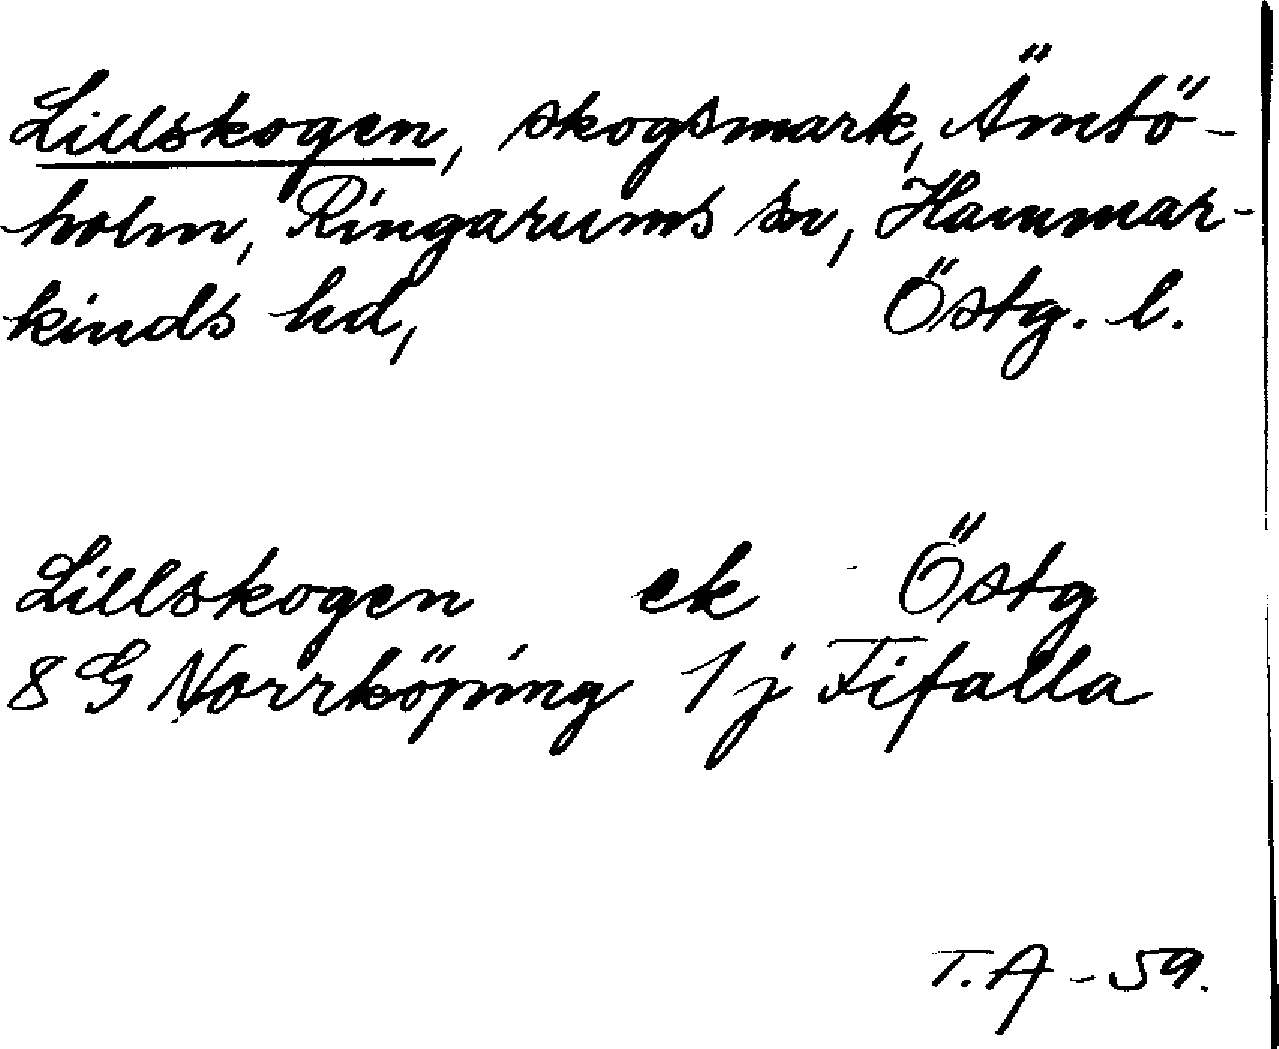 Lillskogen, skogsmark, Ämtö-
holm, Ringarums sn, Hammar-
kinds hd, Östg. l.
Lillskogen ek Östg
8 G Norrköping 1 j Fifalla
T.A - 59.